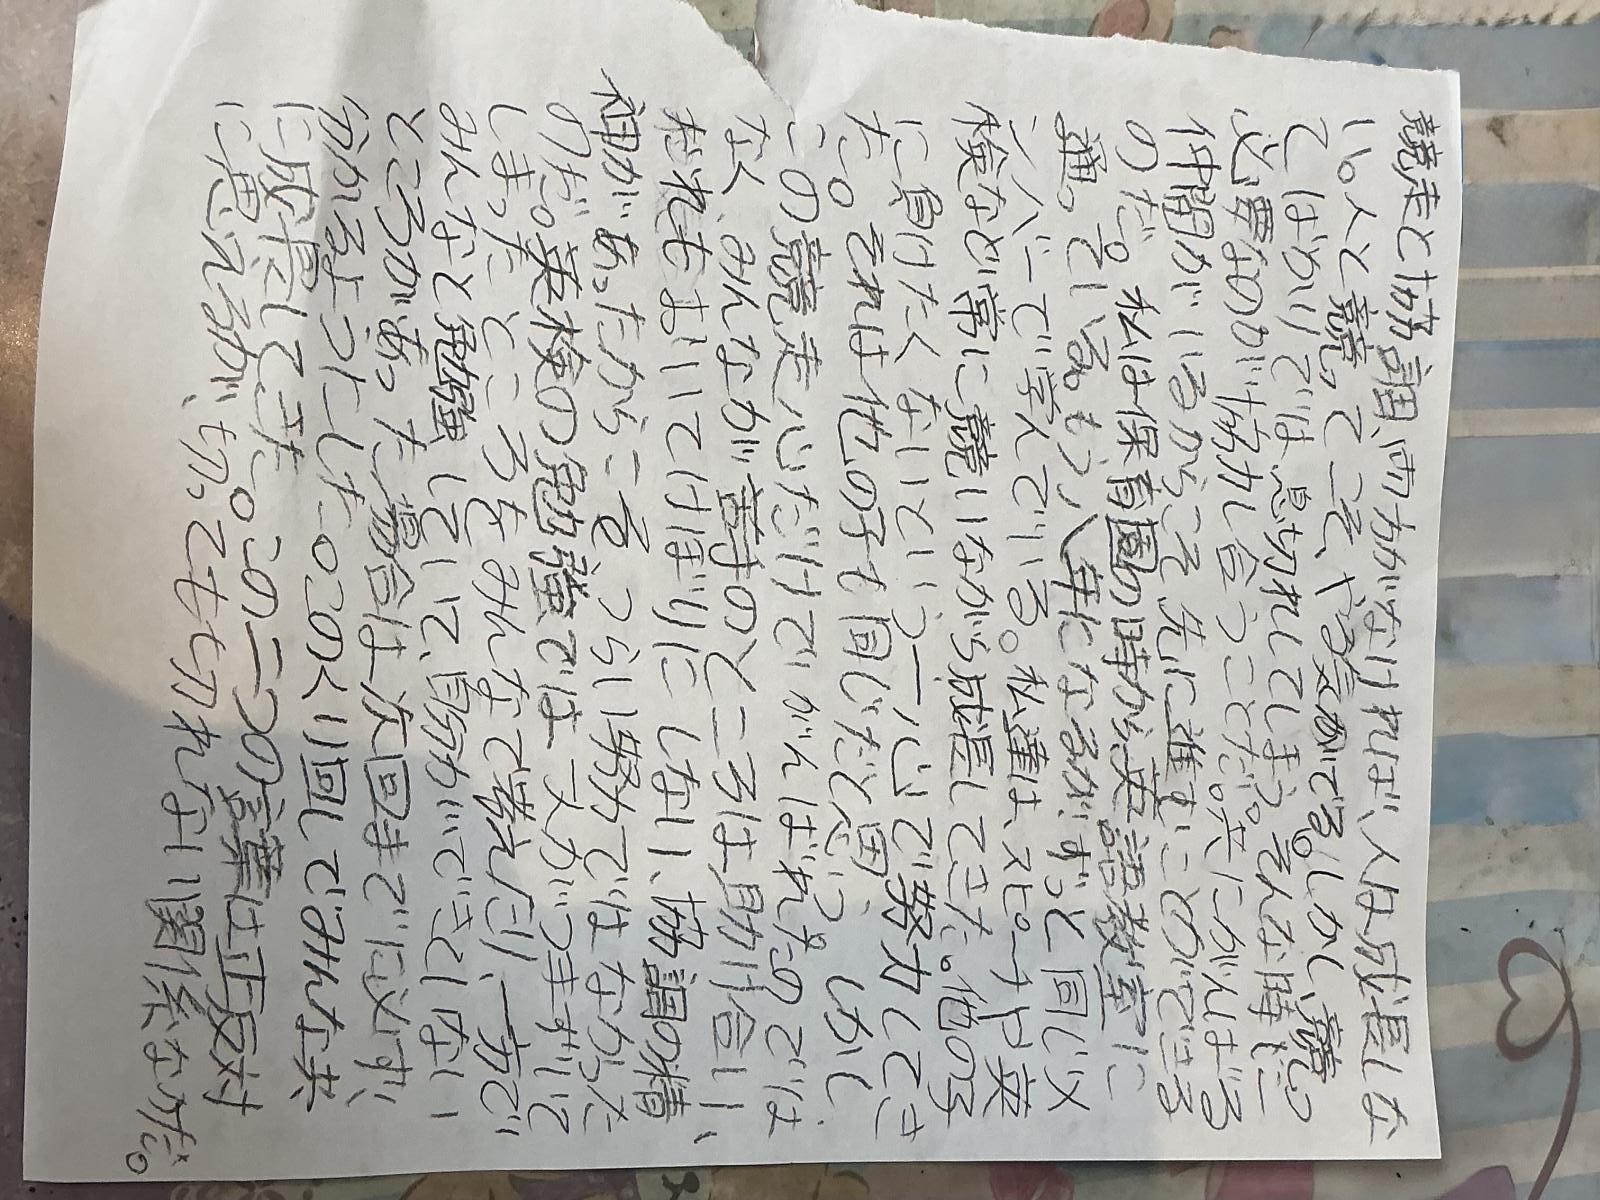 競走と協調、両方がなければ、人は成長しな
い。人と競ってこそ、やる気がでる。しかし、競っ
てばかりでは息切れしてしまう。そんな時に
必要なのが協力し合うことだ。共にがんばる
仲間がいるからこそ、先に進むことができる
のだ。私は保育園の時から英語教室に
通っている。もう、八年になるが、ずっと同じメ
ンバーで学んでいる。私達は、スピーチや英
検など常に競いながら成長してきた。他の子
に負けたくないという一心で努力してき
た。それは他の子も同じだと思う。しかし、
この競走心だけでがんばれたのでは
なく、みんなが苦手のところは助け合い、
だれもおいてけぼりにしない、協調の精
神があったからこそつらい努力ではなかった
のだ。英検の勉強では、一人がつまずいて
しまったところをみんなで考えたり、一方で
みんなと勉強していて、自分ができていない
ところがあった場合は次回までに必ず、
分かるようにした。このくり回しでみんな共
に成長してきた。この二つの言葉は正反対
に思えるが、切っても切れない関係なのだ。